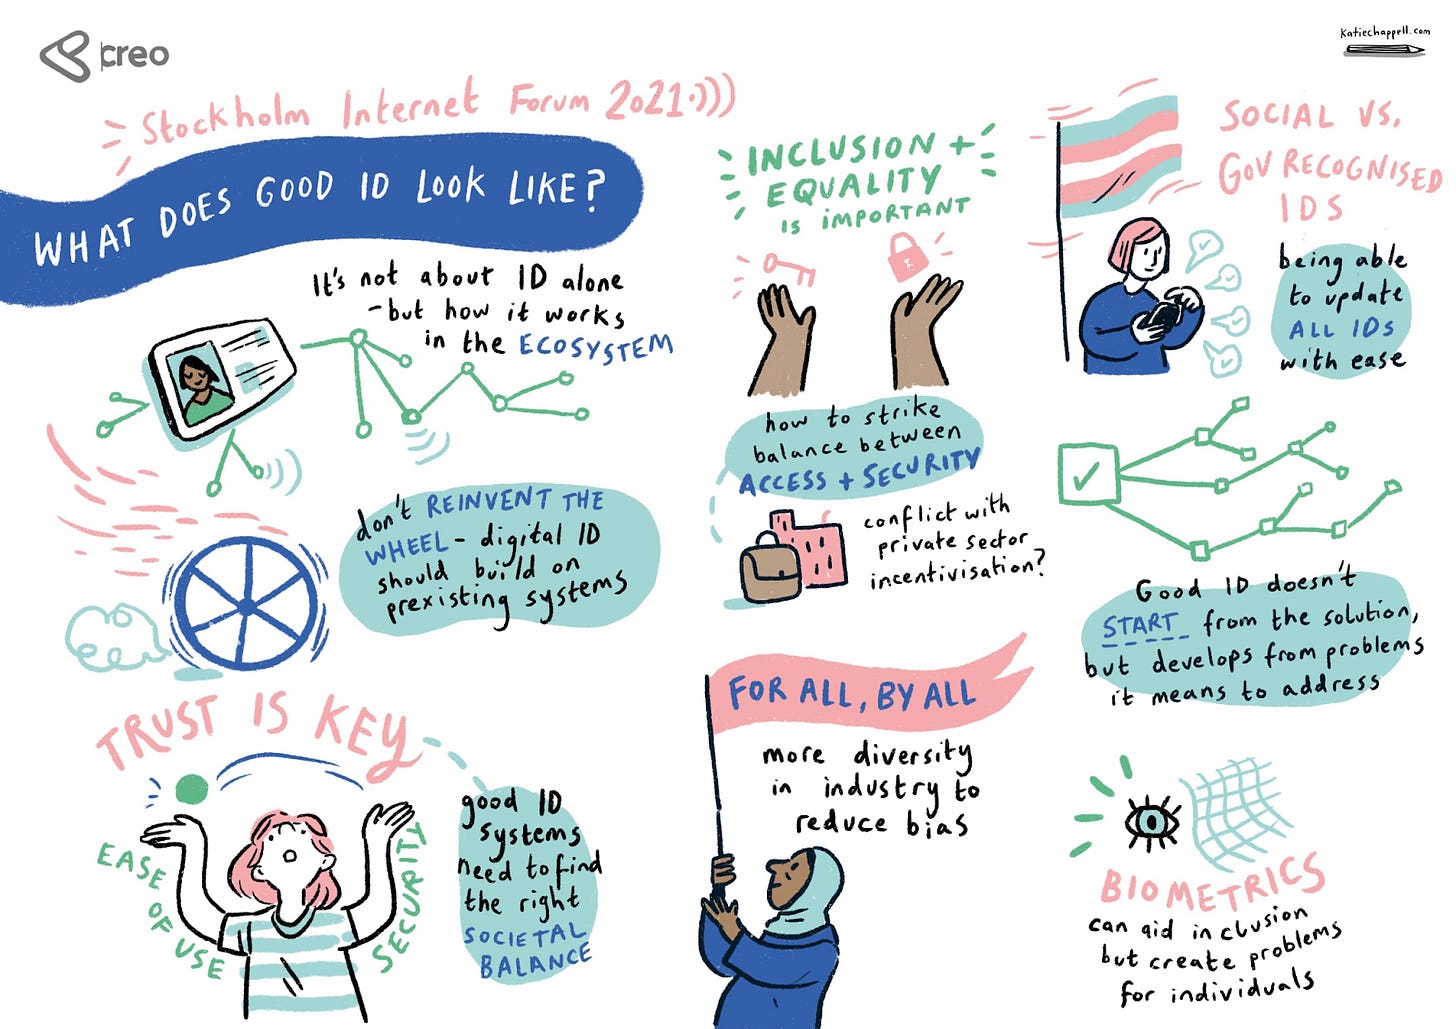 creo
katiechappell.com
Stockholm Internet Forum 2021
WHAT DOES GOOD ID LOOK LIKE?
It's not about ID alone
- but how it works
in the ECOSYSTEM
don't REINVENT THE
WHEEL - digital ID
should build on
prexisting systems
TRUST IS KEY
EASE OF USE
SECURITY
good ID
systems
need to find
the right
SOCIETAL
BALANCE
INCLUSION +
EQUALITY
IS IMPORTANT
how to strike
balance between
ACCESS + SECURITY
conflict with
private sector
incentivisation?
FOR ALL, BY ALL
more diversity
in industry to
reduce bias
SOCIAL VS.
GOV RECOGNISED
IDS
being able
to update
ALL IDs
with ease
Good ID doesn't
START from the solution,
but develops from problems
it means to address
BIOMETRICS
can aid inclusion
but create problems
for individuals